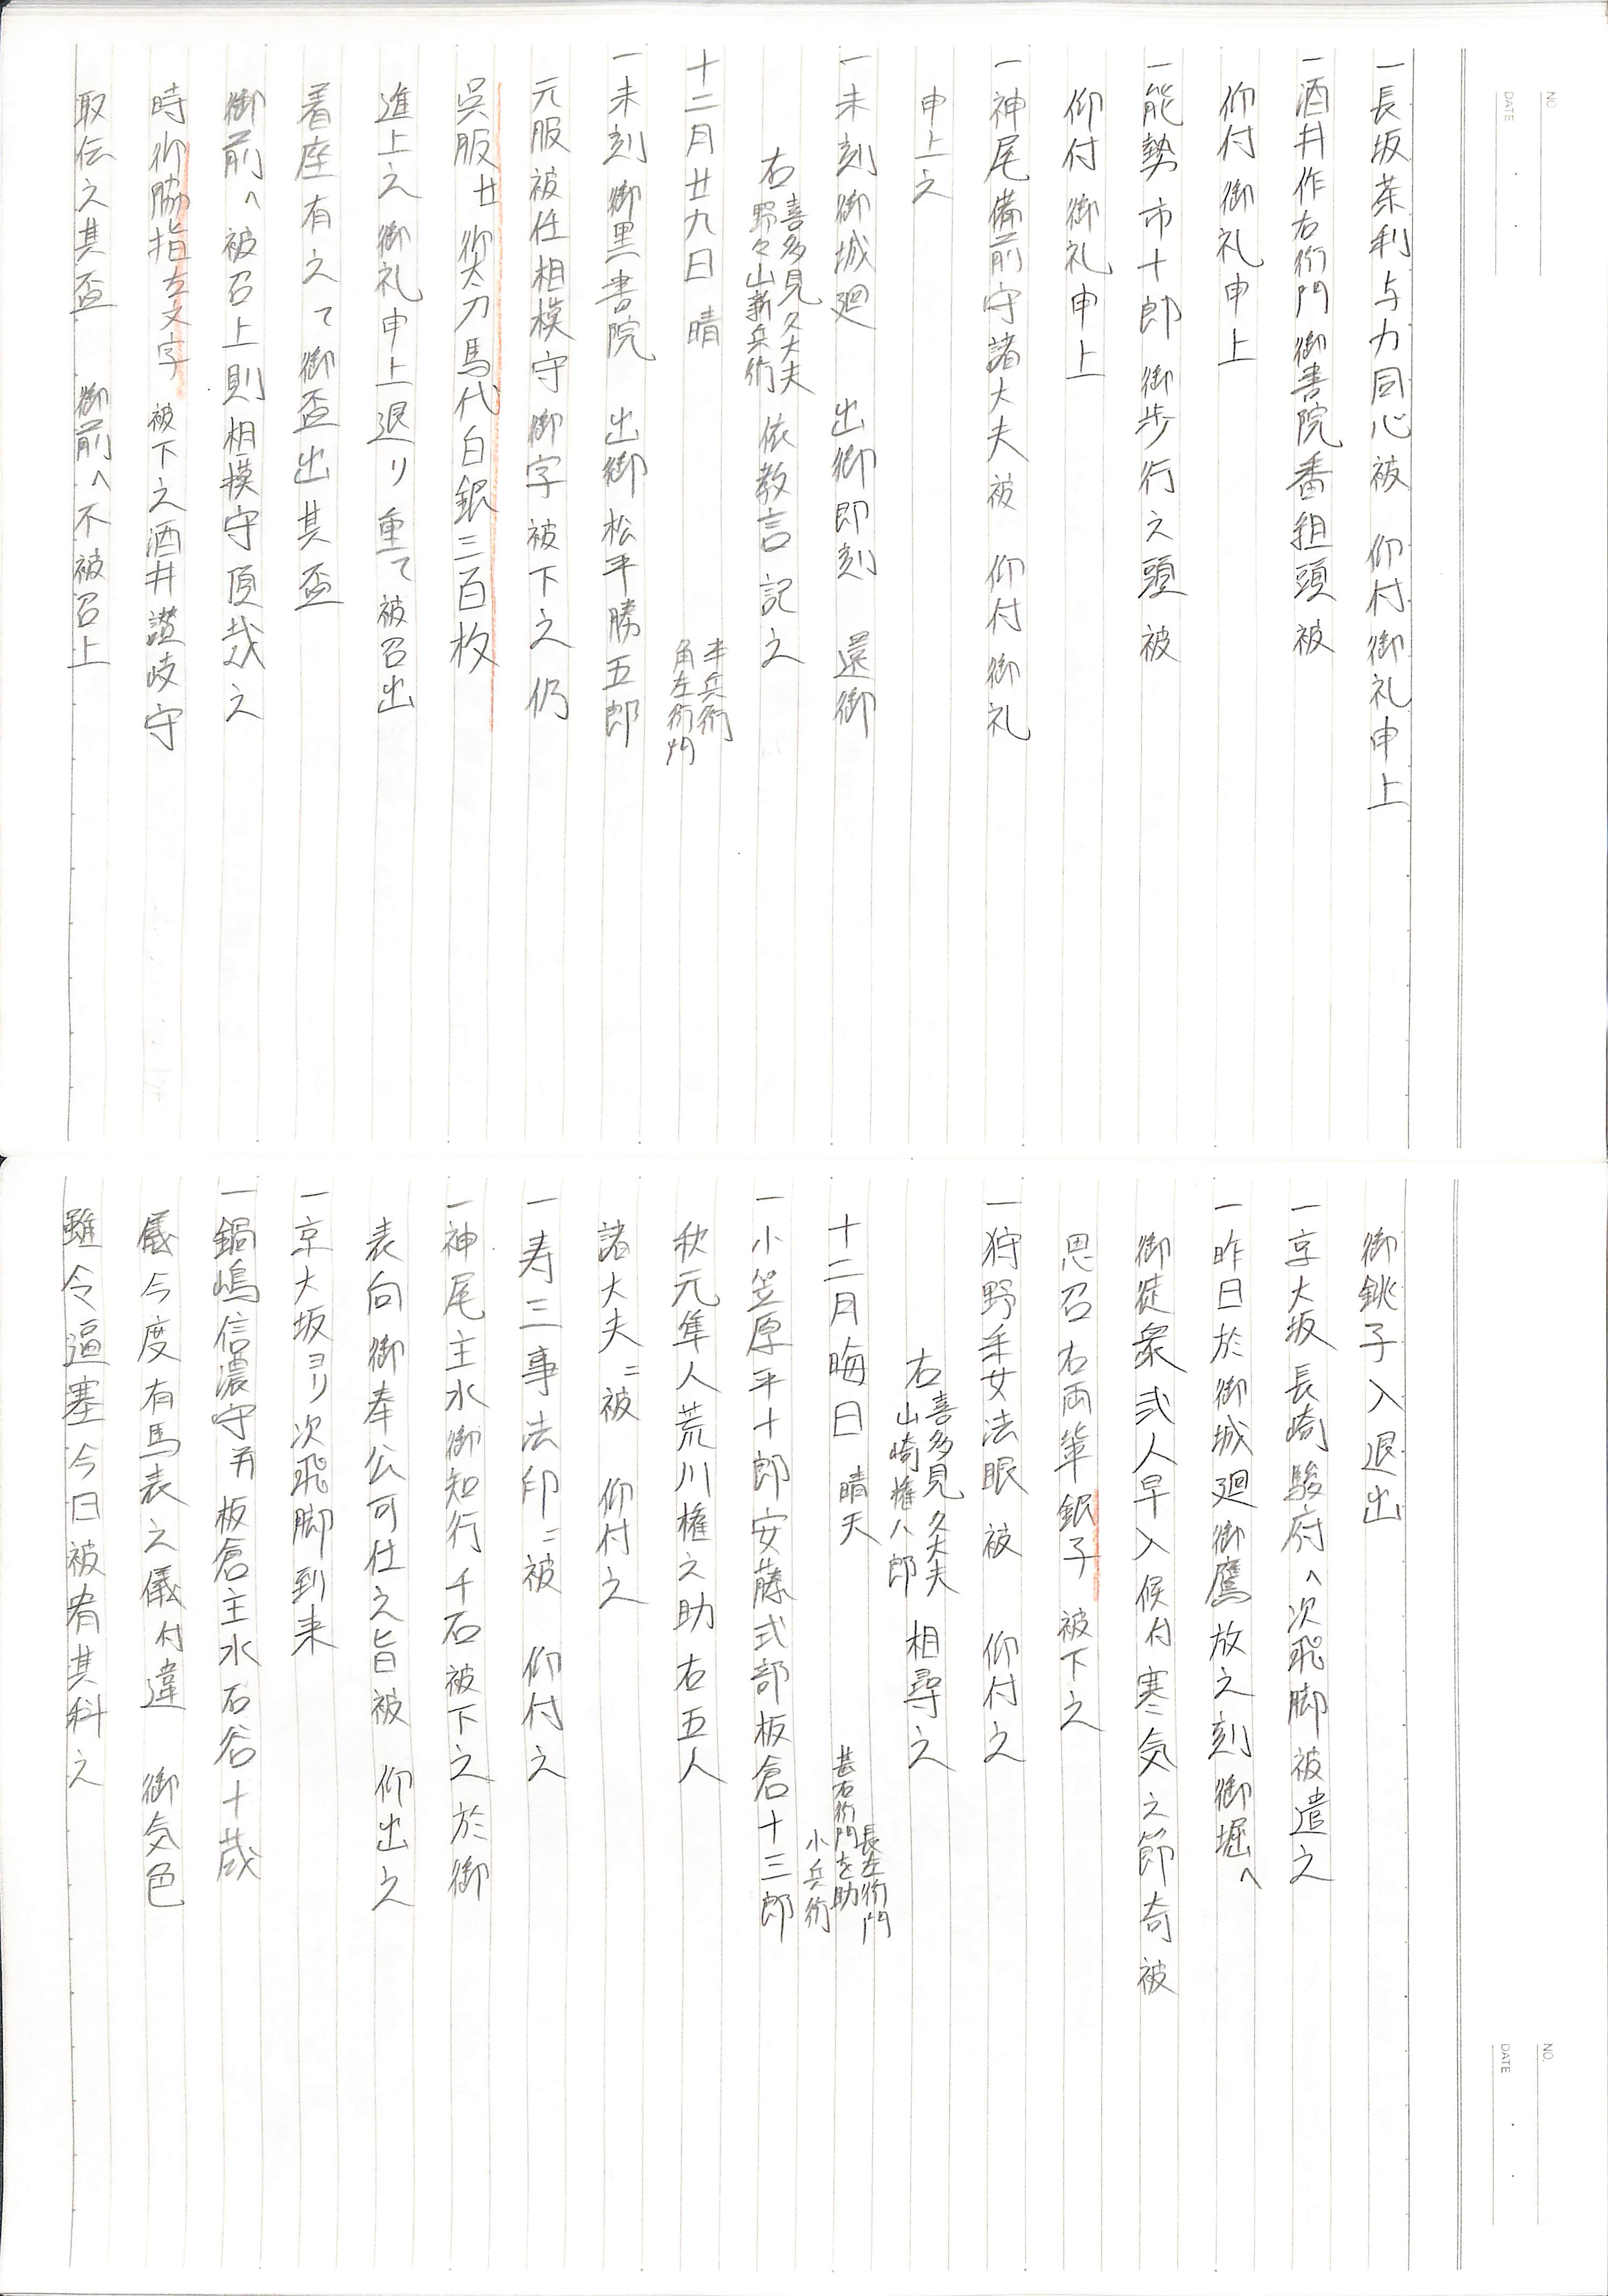 NO.
DATE
一長坂茶利与力同心被 仰付御礼申上
一酒井作右衛門御書院番組頭被
仰付御礼申上
一能勢市十郎御歩行之頭被
仰付御礼申上
一神尾備前守諸大夫被 仰付御礼
申上之
一未刻御城廻 出御即刻 還御
右喜多見久大夫
野々山新兵衛 依教言記之
十二月廿九日 晴 半兵衛
角左衛門
一未刻御黒書院 出御松平勝五郎
元服被任相模守御字被下之仍
呉服廿 御太刀馬代白銀三百枚
進上之御礼申上退リ重て被召出
着座有之て御盃出其盃
御前へ被召上則相模守頂戴之
時御脇指左文字 被下之酒井讃岐守
取伝之其盃 御前へ不被召上
御銚子入退出
一京大坂長崎駿府へ次飛脚被遣之
一昨日於御城廻御鷹放之刻御堀へ
御徒衆弐人早入候付寒気之節奇被
思召右両輩銀子被下之
一狩野采女法眼被 仰付之
右喜多見久大夫
山崎権八郎 相尋之
十二月晦日 晴天 長左衛門
甚右衛門を助
小兵衛
一小笠原平十郎安藤式部板倉十三郎
秋元隼人荒川権之助右五人
諸大夫ニ被 仰付之
一寿三事法印ニ被 仰付之
一神尾主水御知行千石被下之於御
表向御奉公可仕之旨被 仰出之
一京大坂ヨリ次飛脚到来
一鍋嶋信濃守并板倉主水石谷十蔵
儀今度有馬表之儀付違 御気色
雖令逼塞今日被宥其科之
NO.
DATE